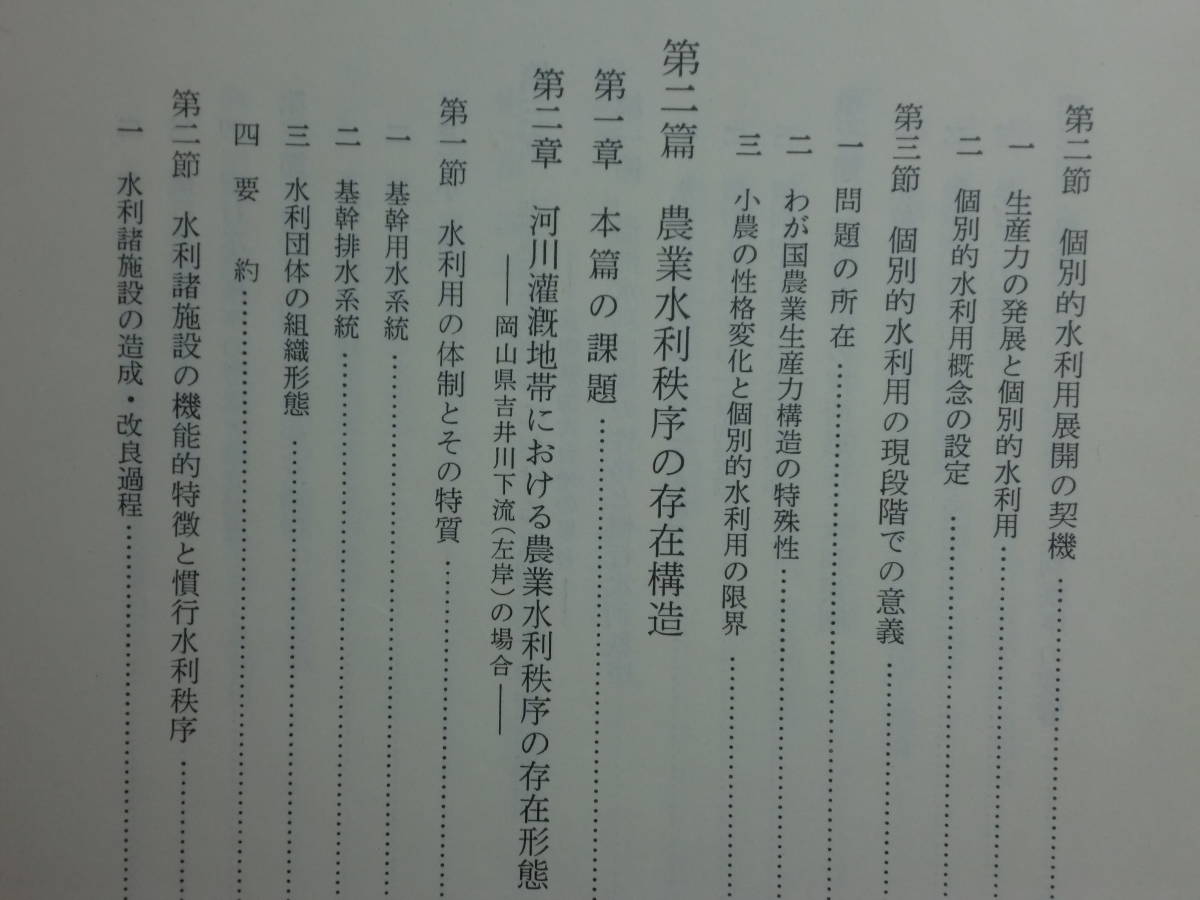 第二節 個別的水利用展開の契機…………………
一 生産力の発展と個別的水利用…………………
二 個別的水利用概念の設定…………………
第三節 個別的水利用の現段階での意義…………………
一 問題の所在…………………
二 わが国農業生産力構造の特殊性…………………
三 小農の性格変化と個別的水利用の限界…………………
第二篇 農業水利秩序の存在構造
第一章 本篇の課題…………………
第二章 河川灌漑地帯における農業水利秩序の存在形態
――岡山県吉井川下流(左岸)の場合――
第一節 水利用の体制とその特質…………………
一 基幹用水系統…………………
二 基幹排水系統…………………
三 水利団体の組織形態…………………
四 要約…………………
第二節 水利諸施設の機能的特徴と慣行水利秩序…………………
一 水利諸施設の造成・改良過程…………………